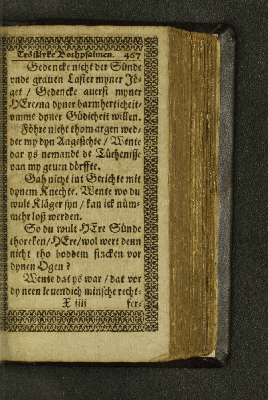 Tröstlyke Bothpsalmen. 467
Gedencke nicht der Sünde
vnde grauen Laster myner Jö-
get / Gedencke auerst myner
HEre / na dyner barmherticheit /
vmme dyner Güdicheit willen.
Föhre nicht thom argen wed-
der my dyn Angesichte / Wente
dar ys nemandt de Tüchenisse
van my geuen dörffte.
Gah nicht int Gerichte mit
dynem Knechte. Wente wo du
wult Kläger syn / kan ick nüm-
mehr loß werden.
So du wult HEre Sünde
thoreken / HEre / wol wert denn
nicht tho boddem sincken vor
dynen Ogen?
Wente dat ys war / dat vor
dy neen leuendich minsche recht-
X iiii fer-